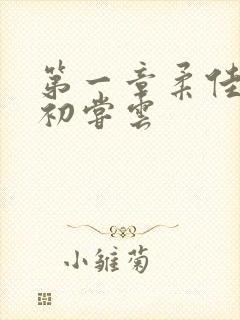 第一章柔佳
初尝云
小雏菊